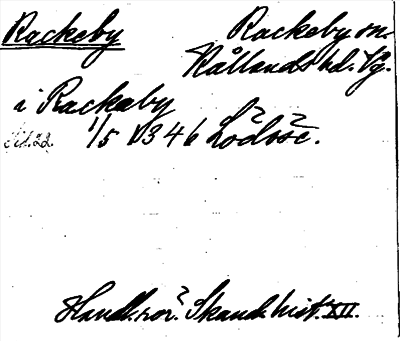 Rackeby Rackeby sn.
Kållands hd. Vg.
i Rackaby
1/5 1346 Lödöse.
Handl. rör. Skand. hist. XII.